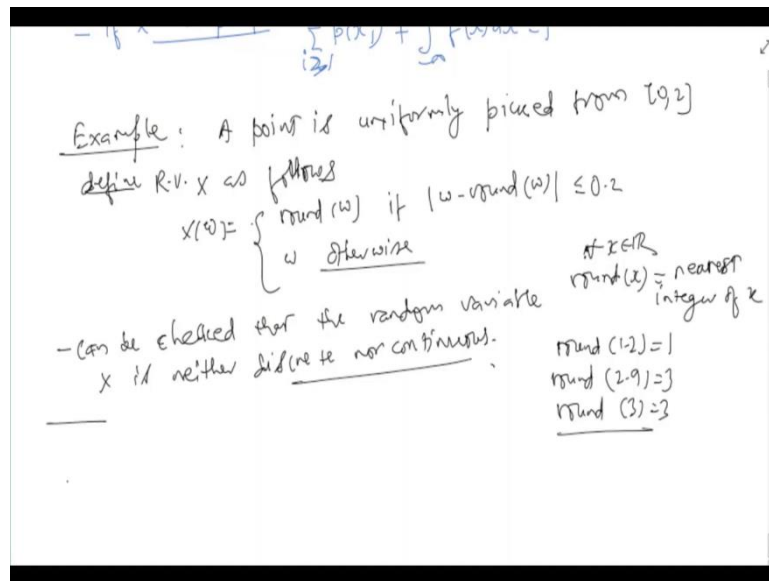 - if x
∑ p(xi) + ∫ f(x)dx = 1
i≥1 -∞
Example: A point is uniformly picked from [0,2]
define R.V. X as follows
X(ω)= { round (ω) if |ω-round(ω)| ≤0.2
ω otherwise
∀ x∈ℝ
round(x) = nearest
integer of x
- Can be checked that the random variable
X is neither discrete nor continuous.
round (1.2)=1
round (2.9)=3
round (3)=3